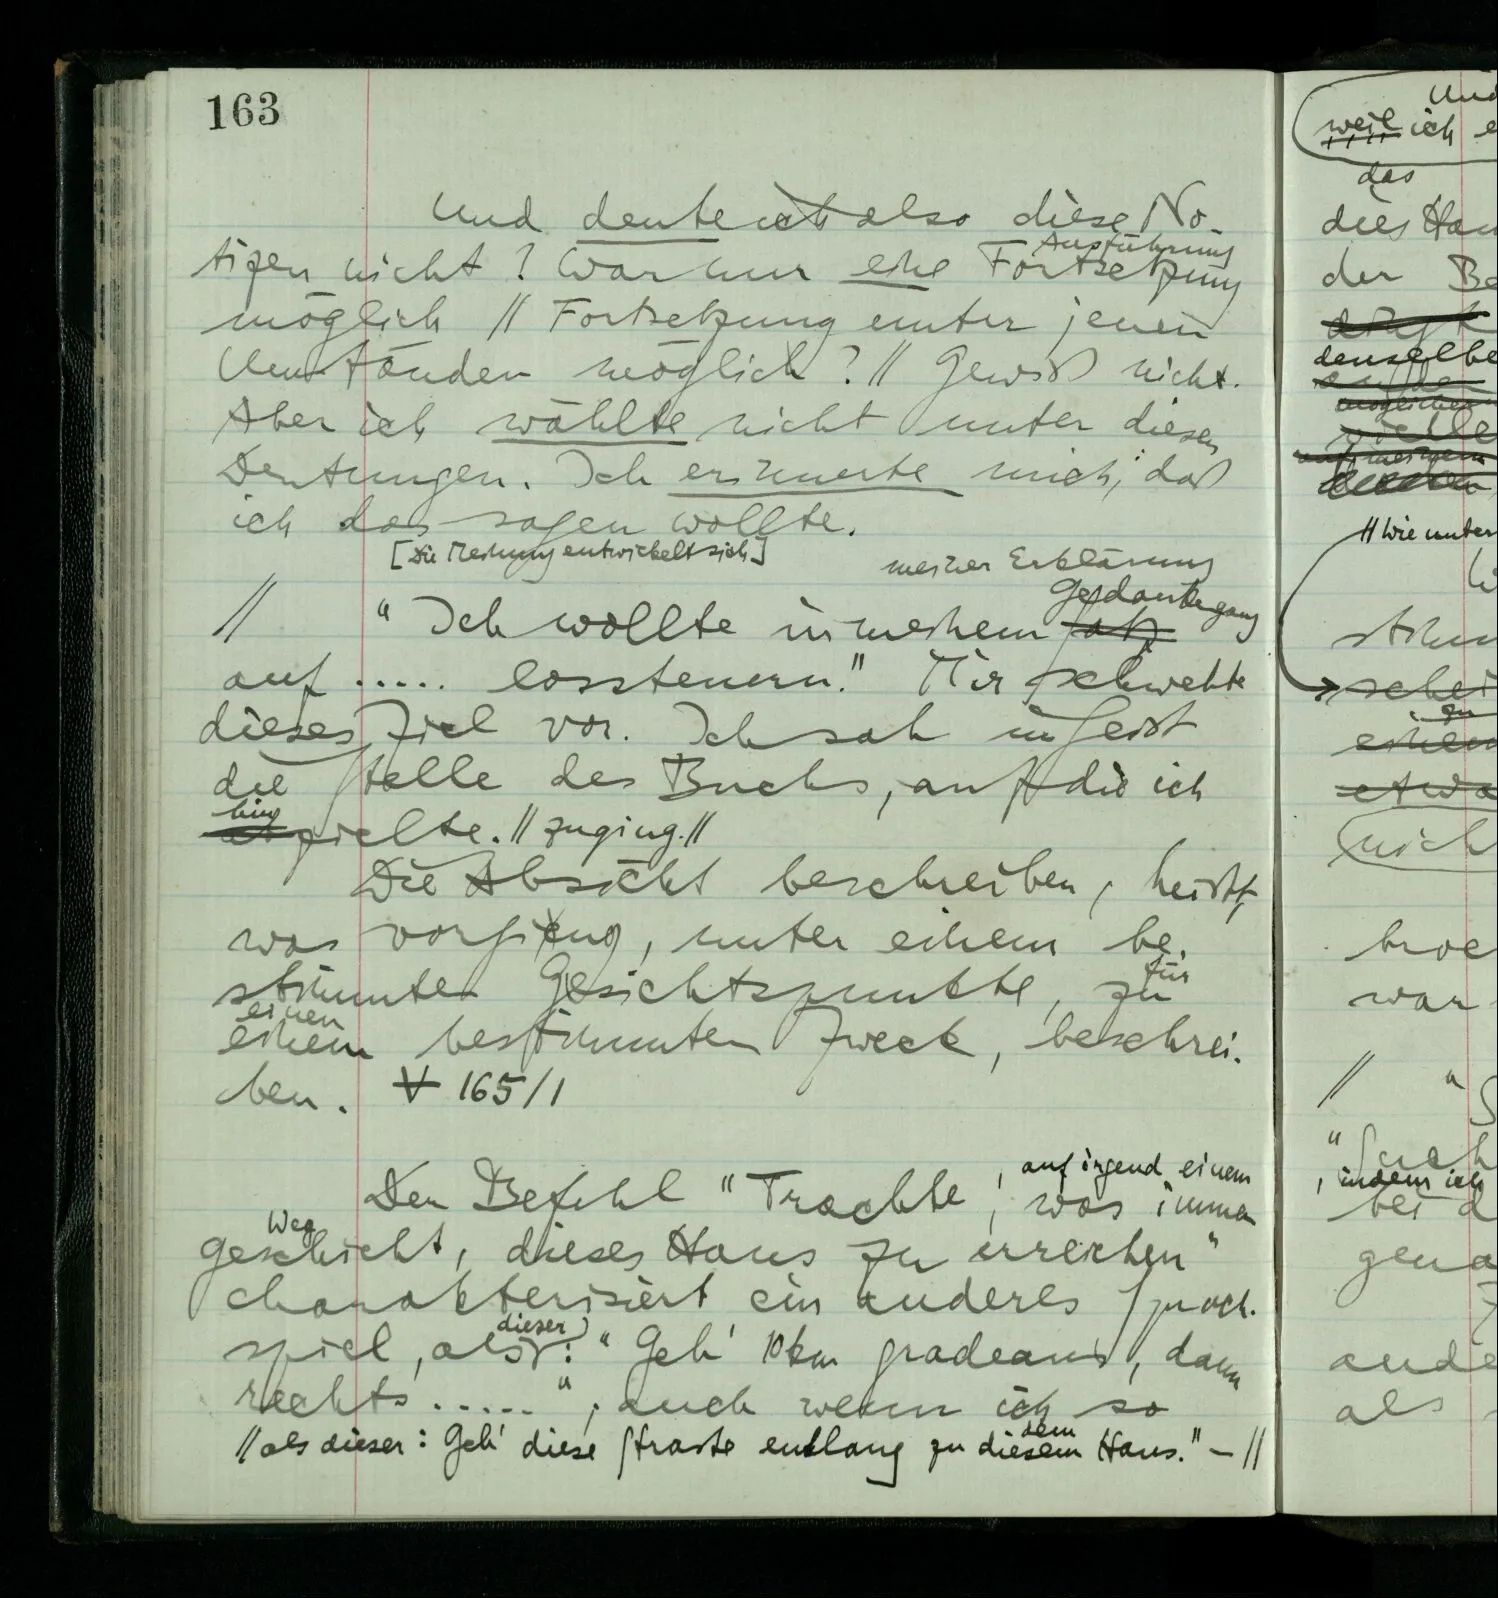 163
Und deute ich also diese No-
Ausführung
tizen nicht? War nur eine Fortsetzung
möglich // Fortsetzung unter jenen
Umständen möglich? // Gewiß nicht.
Aber ich wählte nicht unter diesen
Deutungen. Ich erinnerte mich, daß
ich das sagen wollte.
[Die Meinung entwickelt sich]
meiner Erklärung
Gedankengang
// "Ich wollte in meinem Satz
auf ..... lossteuern." Mir schwebte
dieses Ziel vor. Ich sah im Geist
die Stelle des Buchs, auf die ich
hin
zielte. // zuging. //
Die Absicht beschreiben, heißt,
was vorging, unter einem be-
stimmten Gesichtspunkte, zu
für
einen
einem bestimmten Zweck, beschrei-
ben. ∀ 165/1
, auf irgend einem
Der Befehl "Trachte, was immer
Weg
geschieht, dieses Haus zu erreichen"
charakterisiert ein anderes Sprach-
dieser
spiel, als: "Geh' 10 km gradeaus, dann
rechts .....", auch wenn ich so
dem
// als dieser: Geh' diese Straße entlang zu diesem Haus." – //
Und
weil ich
das
dies Hau
der Be
denselbe
// Wie unter
stimm
schei
zu
einem
etwa
nich
war
//
, indem ich
bei d
gena
ande
als